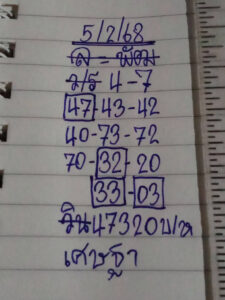 5/2/68
ล = พัฒน
ม/ร 4-7
47-43-42
40-73-72
70-32-20
33-03
วิน47320บ/ท
เศษฐา